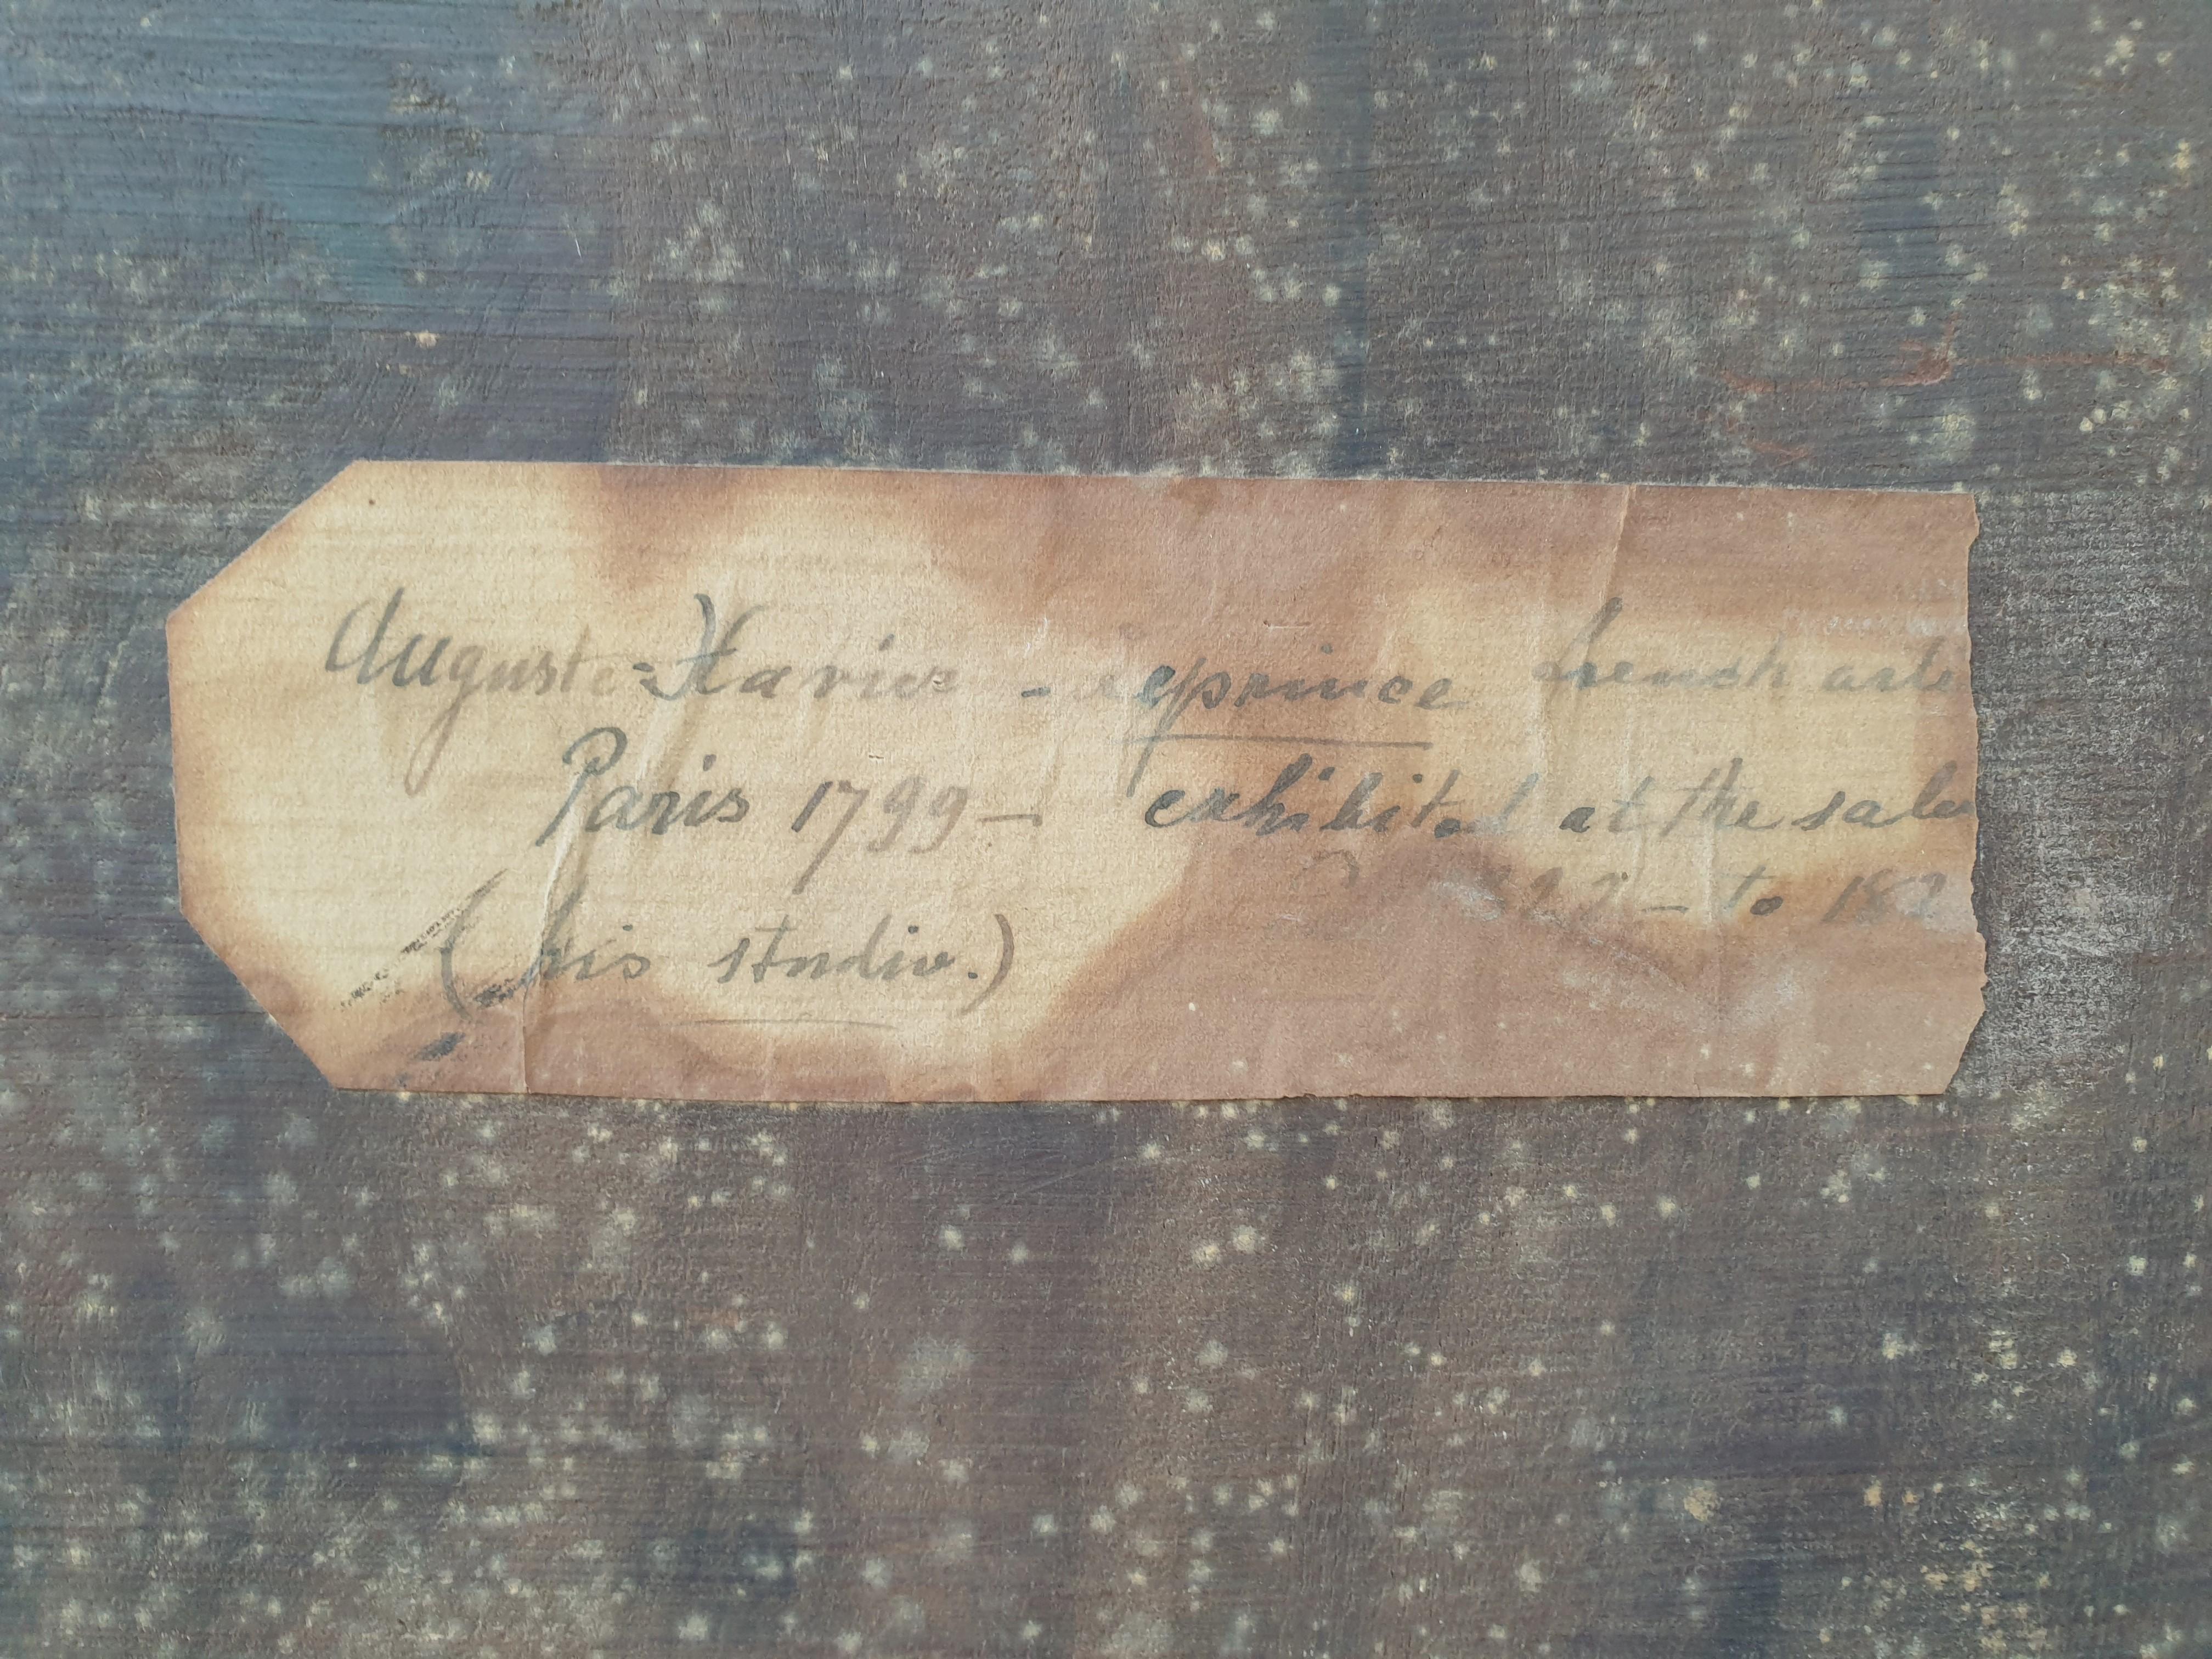 Auguste-Xavier - Leprince french arti
Paris 1799- exhibited at the salo
- to 182
(his studio.)